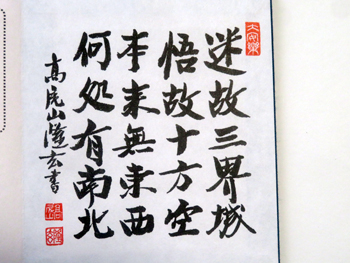 大安樂
迷故三界城
悟故十方空
本来無東西
何処有南北
高尾山隆玄書